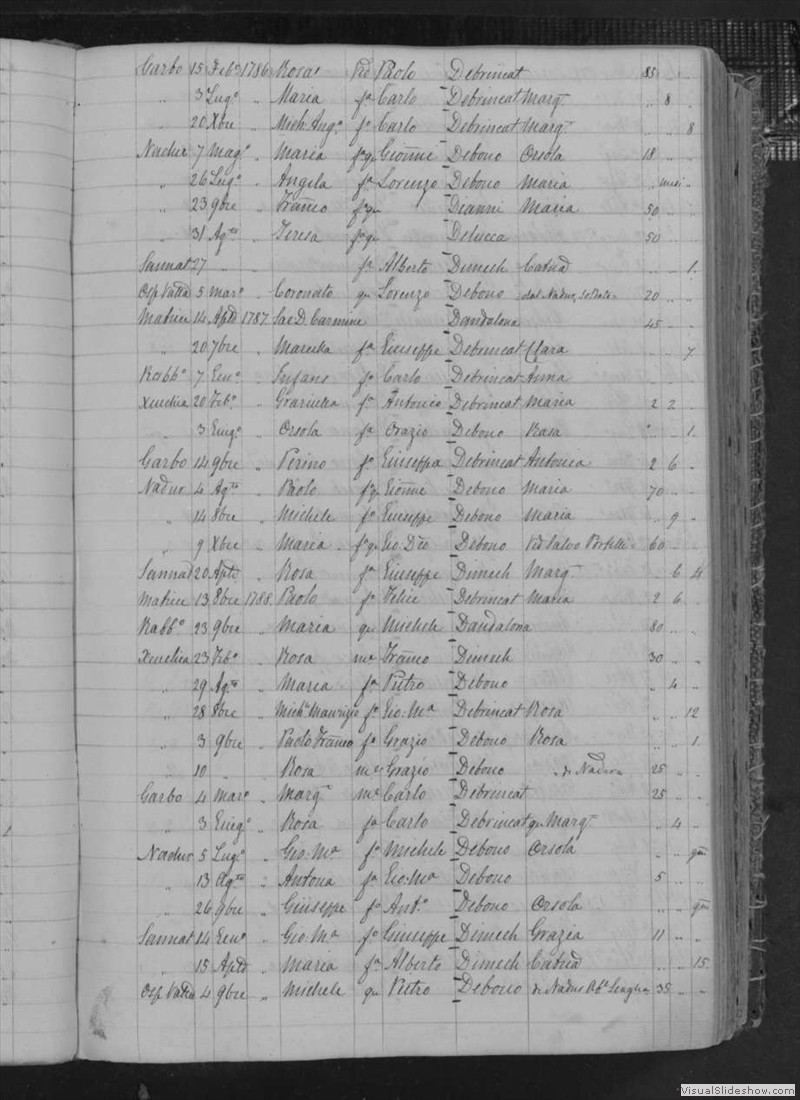 Garbo 15 Feb° 1786 Rosa Vid Paolo Debrincat 85 „ „
„ 3 Lug° „ Maria fa Carlo Debrincat Marg „ 8 „
„ 20 Xbre „ Mich: Ang° fo Carlo Debrincat Marg „ „ 8
Nadur 7 Mag° „ Maria Gionne Debono Orsola 18 „ „
„ 26 Lug° „ Angela fa Lorenzo Debono Maria „ mesi „
„ 23 9bre „ Maria 50 „ „
„ 31 Agto „ Teresa Delucca 50
Sannat 27 „ fa Alberto Dimech Catud „ „ 1
Osp Vatta 5 mar° „ Coronato qu Lorenzo Debono dal Nadur, soldato 20 „ „
Matrice 14 Aple 1787 Sac D. Carmine Dandalona 45 „
„ 20 7bre „ fa Giuseppe Debrincat Clara „ 7
Rabb° 7 Gen° „ Infans fo Carlo Debrincat Anna
Xeuchia 20 Feb° „ fa Antonio Debrincat Maria 2 2 „
„ 3 Giug° „ Orsola fa Orazio Debono Rosa „ „ 1
Garbo 14 9bre „ Perino fo Giuseppe Debrincat Antonia 2 6 „
Nadur 4 Agto „ Paolo Gionne Debono Maria 70 „ „
„ 14 8bre „ Michele fo Giuseppe Debono Maria „ 9 „
„ 9 Xbre „ Maria Debono Vid Salvo Portelli 60
Sannat 20 Aple „ Rosa fa Giuseppe Dimech Marg „ 6 4
Matrice 13 8bre 1788 Paolo fo Felice Debrincat Maria 2 6
Rabb° 23 9bre „ Maria qu Michele Dandalona 80 „ „
Xeuchia 23 Feb° „ Rosa me Franco Dimech 30 „ „
„ 29 Agto „ Maria fa Pietro Debono „ 4 „
„ 28 8bre Mich: Maurizio fo Gio: Ma Debrincat Rosa „ „ 12
„ 3 9bre „ Paolo Franco fo Grazio Debono Rosa „ „ 1
„ 10 „ Rosa me Grazio Debono 25 „
Garbo 4 Mar° „ Marg me Carlo Debrincat 25 „ „
„ 3 Giug° „ Rosa fa Carlo Debrincat qu Marg „ 4 „
Nadur 5 Lug° „ Gio: Ma fo Michele Debono Orsola „ „
„ 13 Agto „ Antona fa Gio: Ma Debono 5 „ „
„ 26 9bre „ Giuseppe fo Ant° Debono Orsola „ „
Sannat 14 Gen° „ Gio: Ma fo Giuseppe Dimech Grazia 11 „ „
„ 15 Aple „ Maria fa Alberto Dimech Catud „ „ 15
Osp Vatta 4 9bre „ Michele qu Pietro Debono 35 „ „
VisualSlideshow.com